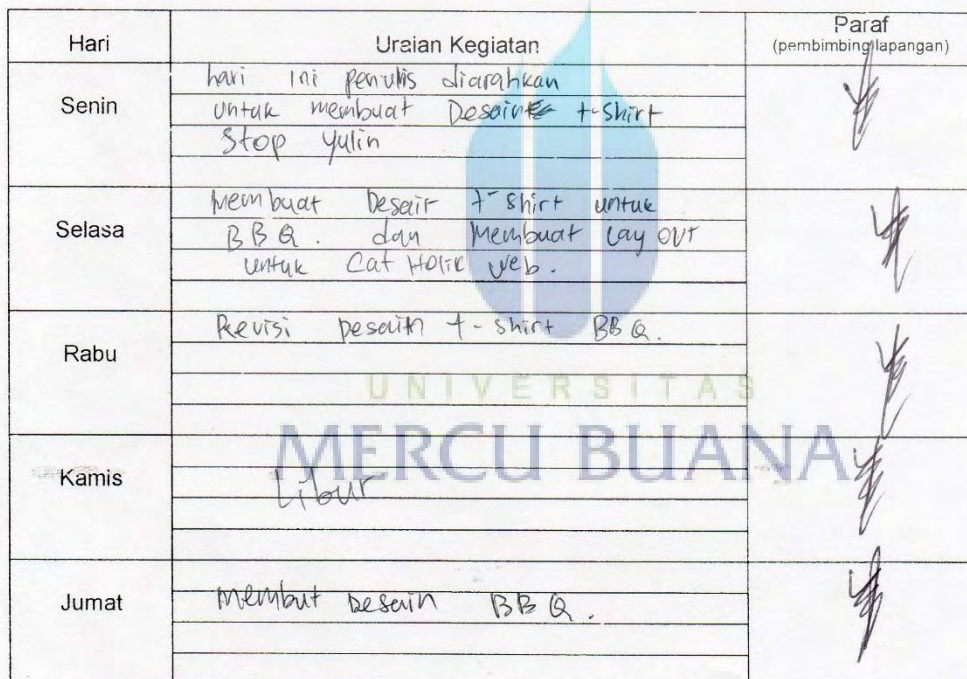 Hari Uraian Kegiatan Paraf
(pembimbing lapangan)
Senin
hari ini penulis diarahkan
untuk membuat Desain t-shirt
Stop Yulin
Selasa
Membuat Desain t-shirt untuk
BBQ. dan Membuat Lay OUT
untuk Cat Holic Web.
Rabu
Revisi Desain t-shirt BBQ.
UNIVERSITAS
MERCU BUANA
Kamis
Libur
Jumat
Membut Desain BBQ.